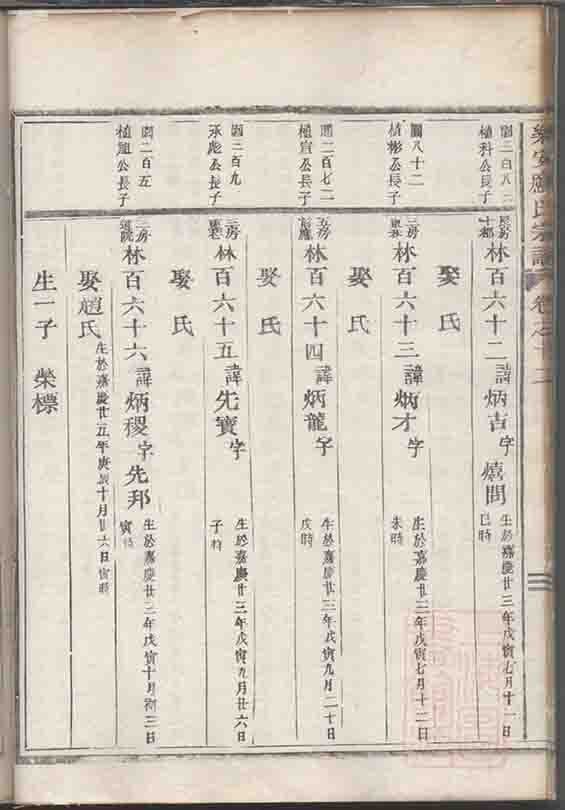 樂安應氏宗譜 卷之十二
圖三百八三
植科公長子
林百六十二 諱炳吉 字熺問
生於嘉慶廿三年戊寅七月十一日
巳時
娶 氏
圖八十二
植彬公長子
三房
林百六十三 諱炳才 字
生於嘉慶廿三年戊寅七月十二日
未時
娶 氏
圖二百七二
植宣公長子
五房
林百六十四 諱炳龍 字
生於嘉慶廿三年戊寅九月二十日
戌時
娶 氏
圖三百九
承彪公長子
三房
林百六十五 諱先寶 字
生於嘉慶廿三年戊寅九月廿六日
子時
娶 氏
圖二百五
植
公長子
三房
林百六十六 諱炳稷 字先邦
生於嘉慶廿三年戊寅十月初三日
寅時
娶趙氏 生於嘉慶廿五年庚辰十月廿六日寅時
生一子 榮標